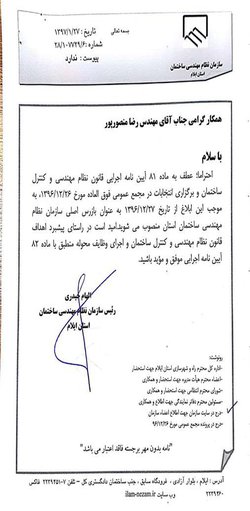 بسمه تعالی
تاریخ : ۱۳۹۷/۱/۲۷
شماره : ۲۸/۱۰۷۷۲۹/۶
پیوست : ندارد
سازمان نظام مهندسی ساختمان
استان ایلام
همکار گرامی جناب آقای مهندس رضا منصورپور
با سلام
احتراماً؛ عطف به ماده ۸۱ آیین نامه اجرایی قانون نظام مهندسی و کنترل
ساختمان و برگزاری انتخابات در مجمع عمومی فوق العاده مورخ ۱۳۹۶/۱۲/۲۶، به
موجب این ابلاغ از تاریخ ۱۳۹۶/۱۲/۲۷ به عنوان بازرس اصلی سازمان نظام
مهندسی ساختمان استان منصوب می شوید.امید است در راستای پیشبرد اهداف
قانون نظام مهندسی و کنترل ساختمان و اجرای وظایف محوله منطبق با ماده ۸۲
آیین نامه اجرایی موفق و مؤید باشید.
الهام حیدری
رئیس سازمان نظام مهندسی ساختمان
استان ایلام
رونوشت:
-اداره کل محترم راه و شهرسازی استان ایلام جهت استحضار
-اعضاء محترم هیأت مدیره جهت استحضار و همکاری
-شورای انتظامی جهت استحضار و همکاری
-مسئولین محترم دفاتر نمایندگی جهت اطلاع و همکاری
-درج در سایت سازمان جهت اطلاع اعضاء سازمان
-درج در پرونده مجمع عمومی مورخ ۹۶/۱۲/۲۶
"نامه بدون مهر برجسته فاقد اعتبار می باشد"
آدرس : ایلام ، بلوار آزادی ، فرودگاه سابق ، جنب ساختمان دادگستری کل – تلفن ۷-۲۲۲۹۴۵۱ فاکس
۲۲۲۹۴۶۰ وب سایت ilam-nezam.ir